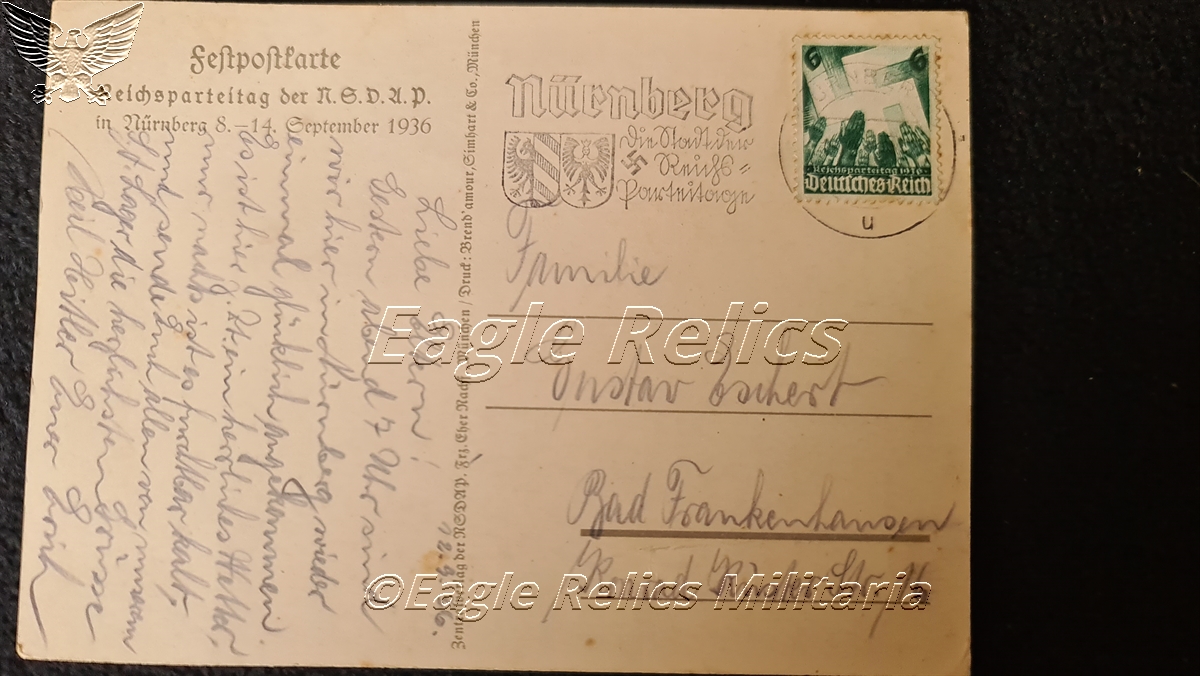 Festpostkarte
Reichsparteitag der N.S.D.A.P.
in Nürnberg 8.–14. September 1936
Nürnberg
die Stadt der
Reichs=
parteitage
6 6
Reichsparteitag 1936
Deutsches Reich
u
Familie
Gustav Eschert
Bad Frankenhausen
Str.
Zentralverlag der NSDAP. Frz. Eher Nachf. München / Druck: Brend'amour, Simhart & Co., München
12.9.36.
Liebe Eltern!
Gestern abend 7 Uhr sind
wir hier in Nürnberg wieder
einmal glücklich angekommen.
Es ist hier z. Zt. ein herrliches Wetter,
nur nachts ist es furchtbar kalt,
und sende Euch allen von unserm
Lager die herzlichsten Grüsse
Heil Hitler Euer Erich
Eagle Relics
©Eagle Relics Militaria